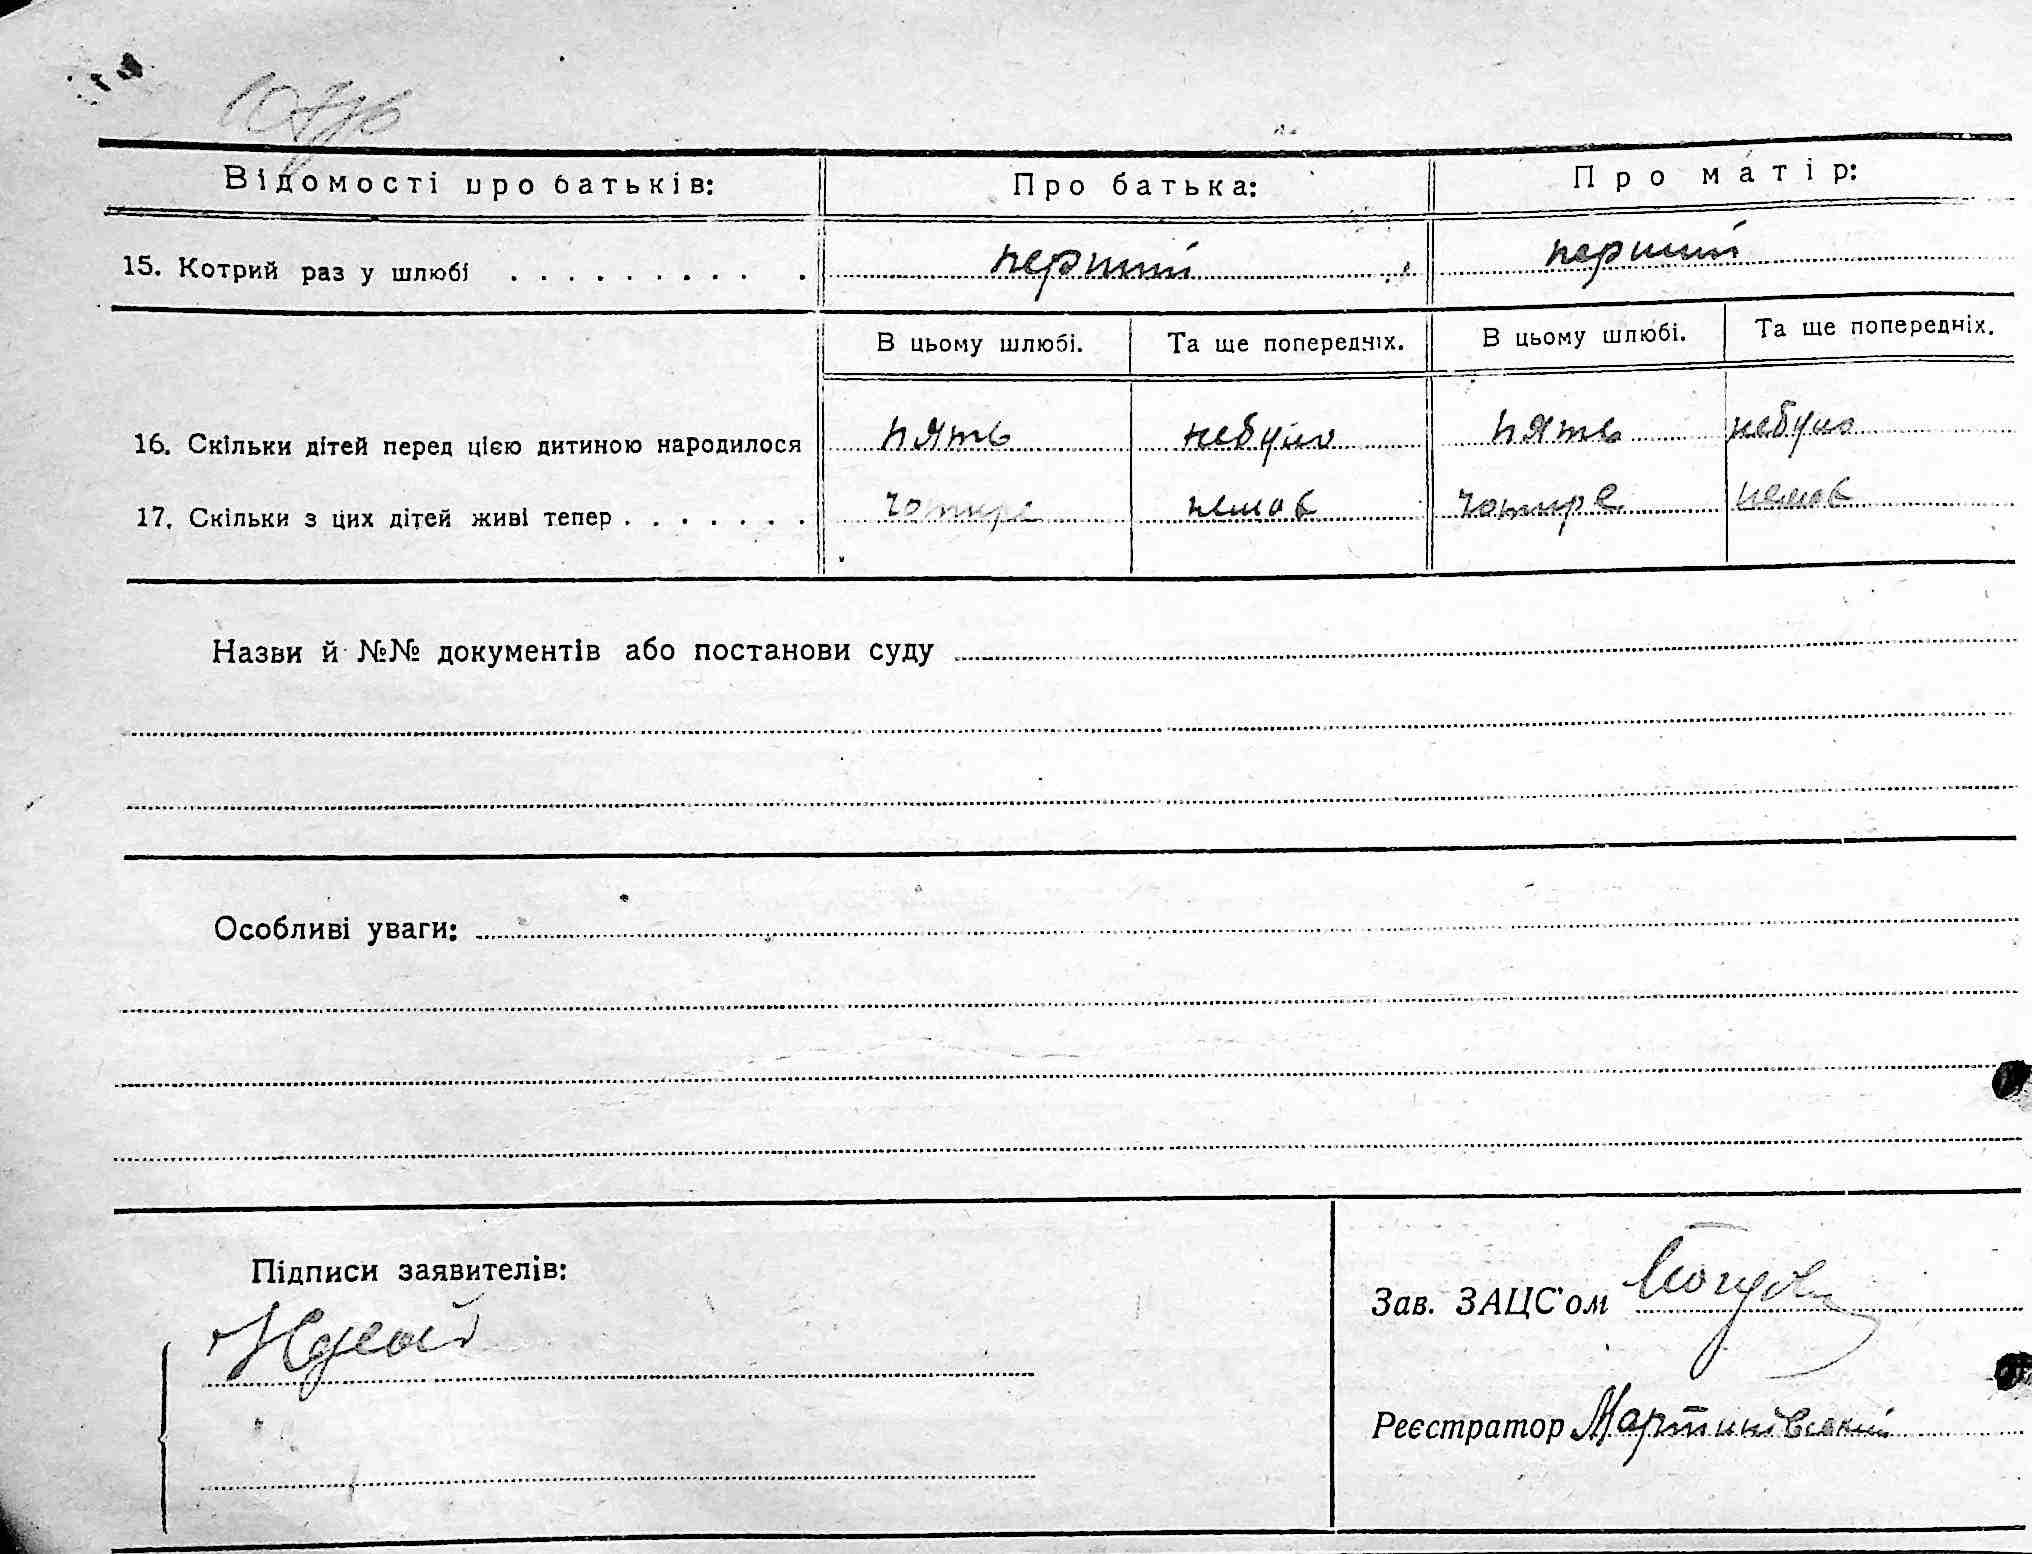 Відомості про батьків: Про батька: Про матір:
15. Котрий раз у шлюбі . . . . . . . . . . перший перший
В цьому шлюбі. Та ще попередніх. В цьому шлюбі. Та ще попередніх.
16. Скільки дітей перед цією дитиною народилося пять небуло пять небуло
17. Скільки з цих дітей живі тепер . . . . . . . чотире немає чотире немає
Назви й №№ документів або постанови суду
Особливі уваги:
Підписи заявителів:
Зав. ЗАЦС'ом
Реєстратор Мартинівський